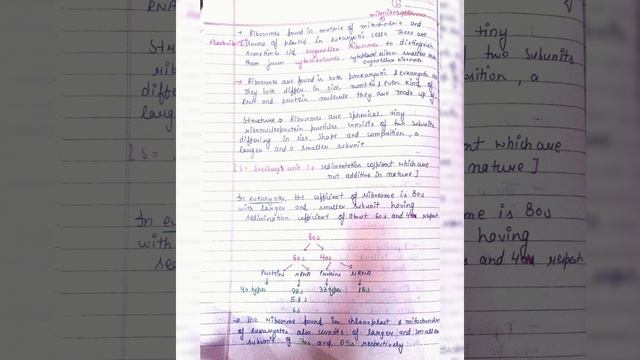 → Ribosomes found in matrix of mitochondria and
stroma of plastid in eukaryotic cells There are
sometimes c/d organellar ribosomes to distinguish
them from cytoribosomes.
→ Ribosomes are found in both prokaryotic & eukaryotic
They both differ in size, number & even kind of
RNA and protein molecule they are made up of
Structure → Ribosomes are spherical, tiny
ribonucleoprotein particles consists of two subunits
differing in size, shape and composition, a
larger and a smaller subunit
[ S = Svedberg's unit : sedimentation coffient which are
not additive in nature ]
In eukaryotes, the cofficient of ribosome is 80s
with larger and smaller subunit having
sedimination cofficient of about 60s and 40s respect.
80s
60s 40s
Proteins rRNA Proteins rRNA
40 types 28s 33 types 18s
5.8s
→ The ribosome found in chloroplast & mitochondria
of eukaryotes also consists of larger and smaller
subunit of 70s and 55s respectively